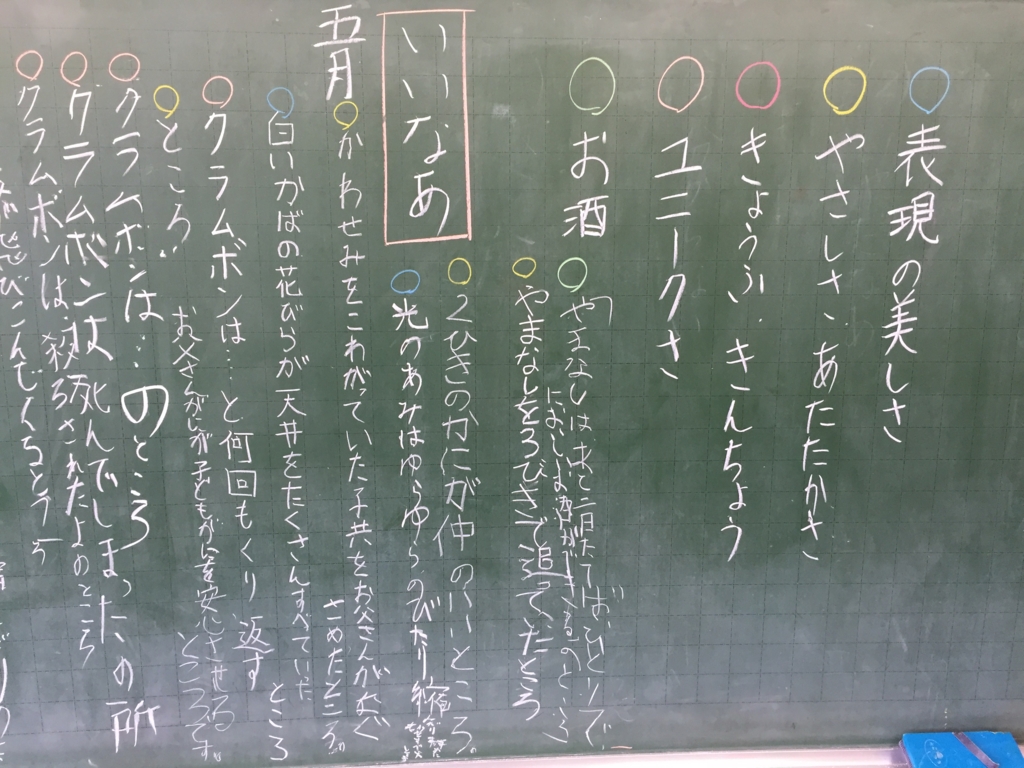 表現の美しさ
やさしさ・あたたかさ
きょうふ・きんちょう
ユニークさ
お酒
やまなしはあと二日たてばひとりで
におしいお酒ができるのところ
やまなしをろびきで追てていたところ
2ひきのかにが仲のいいところ。
光のあみはゆらゆらのびたり縮
いいなあ
五月
かわせみをこわがていた子共をお父さんがなぐ
さめたところ。
白いかばの花びらが天井をたくさんすべていた
ところ
クラムボンは…と何回もくり返す
ところ
お父さんがにが子どもがにを安心させる
ところです。
クラムボンは…のところ
クラムボンは死んでしまったの所
クラムボンは、殺されたよのところ